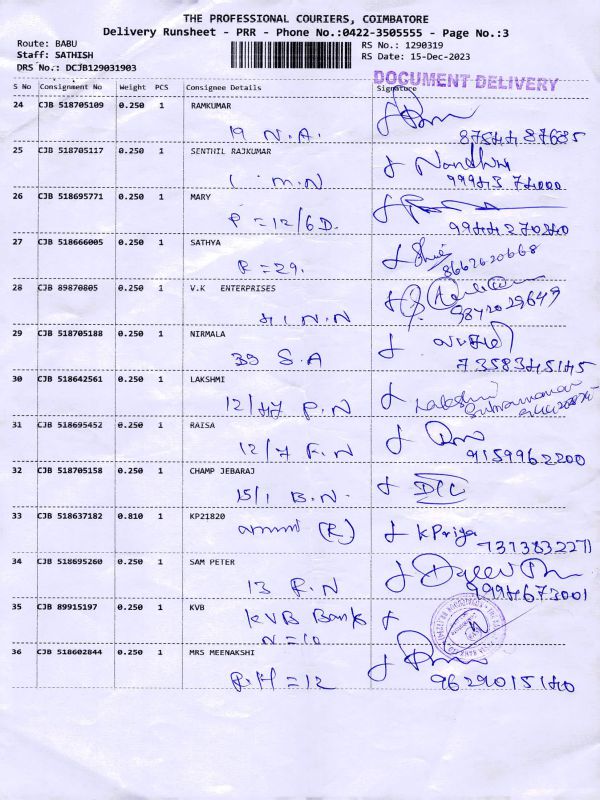 THE PROFESSIONAL COURIERS, COIMBATORE
Delivery Runsheet - PRR - Phone No.:0422-3505555 - Page No.:3
Route: BABU
RS No.: 1290319
Staff: SATHISH
RS Date: 15-Dec-2023
DRS No.: DCJB129031903
DOCUMENT DELIVERY
S No Consignment No Weight PCS Consignee Details Signature
24 CJB 518705109 0.250 1 RAMKUMAR
19 N.A.
25 CJB 518705117 0.250 1 SENTHIL RAJKUMAR
M.N
26 CJB 518695771 0.250 1 MARY
P = 12/6 D.
9944270240
27 CJB 518666005 0.250 1 SATHYA
R = 29.
8662620668
28 CJB 89870805 0.250 1 V.K ENTERPRISES
N.N
9842029649
29 CJB 518705188 0.250 1 NIRMALA
39 S.A
7358345145
30 CJB 518642561 0.250 1 LAKSHMI
12/47 P.N
Lakshmi
31 CJB 518695452 0.250 1 RAISA
12/7 F.N
9159962200
32 CJB 518705158 0.250 1 CHAMP JEBARAJ
15/1 B.N.
33 CJB 518637182 0.810 1 KP21820
(R)
K Priya
7373832271
34 CJB 518695260 0.250 1 SAM PETER
13 R.N
9994673001
35 CJB 89915197 0.250 1 KVB
KVB Bank
N = 10
36 CJB 518602844 0.250 1 MRS MEENAKSHI
P.H = 12
9629015140